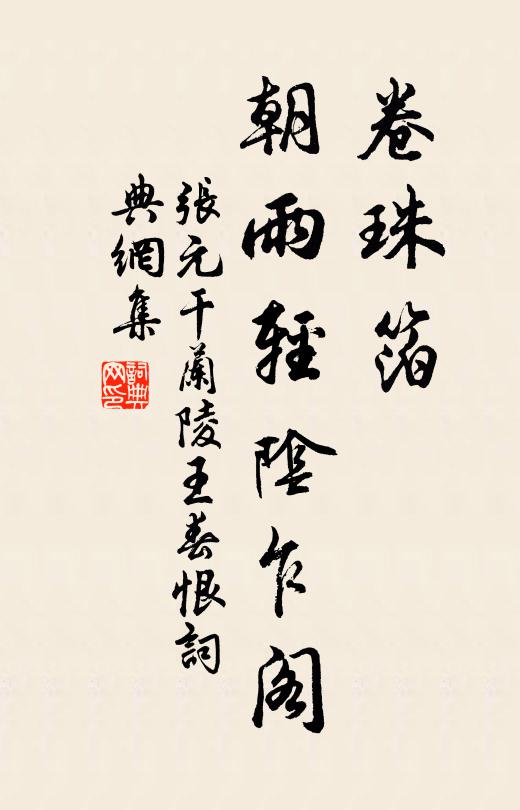 卷珠箔
朝雨輕陰乍閣
張元干蘭陵王春恨詞
典網集
詞典網印